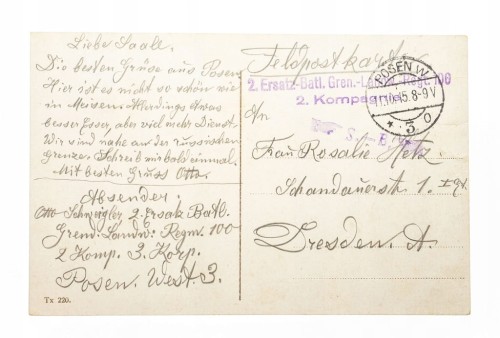 Liebe Saale.
Die besten Grüse aus Posen
Hier ist es nicht so schön wie
in Meisen. Allerdings etwas
besser Essen, aber viel mehr Dienst.
Wir sind nahe an der russischen
grenze. Schreib mir bald einmal.
Mit besten Gruss Otto.
Absender,
Otto 2. Ersatz Batl.
Gren. Landw. Regm. 100
2 Komp. 3. Korp.
Posen. West. 3.
Tx 220.
Feldpostkarte
2. Ersatz-Batl. Gren.-Regt. 100
2. Kompagnie
POSEN W.
11.10.15.8-9V
* 3 o
An
S. B.
Frau Rosalie
Schandauerst. 1.
Dresden. A.